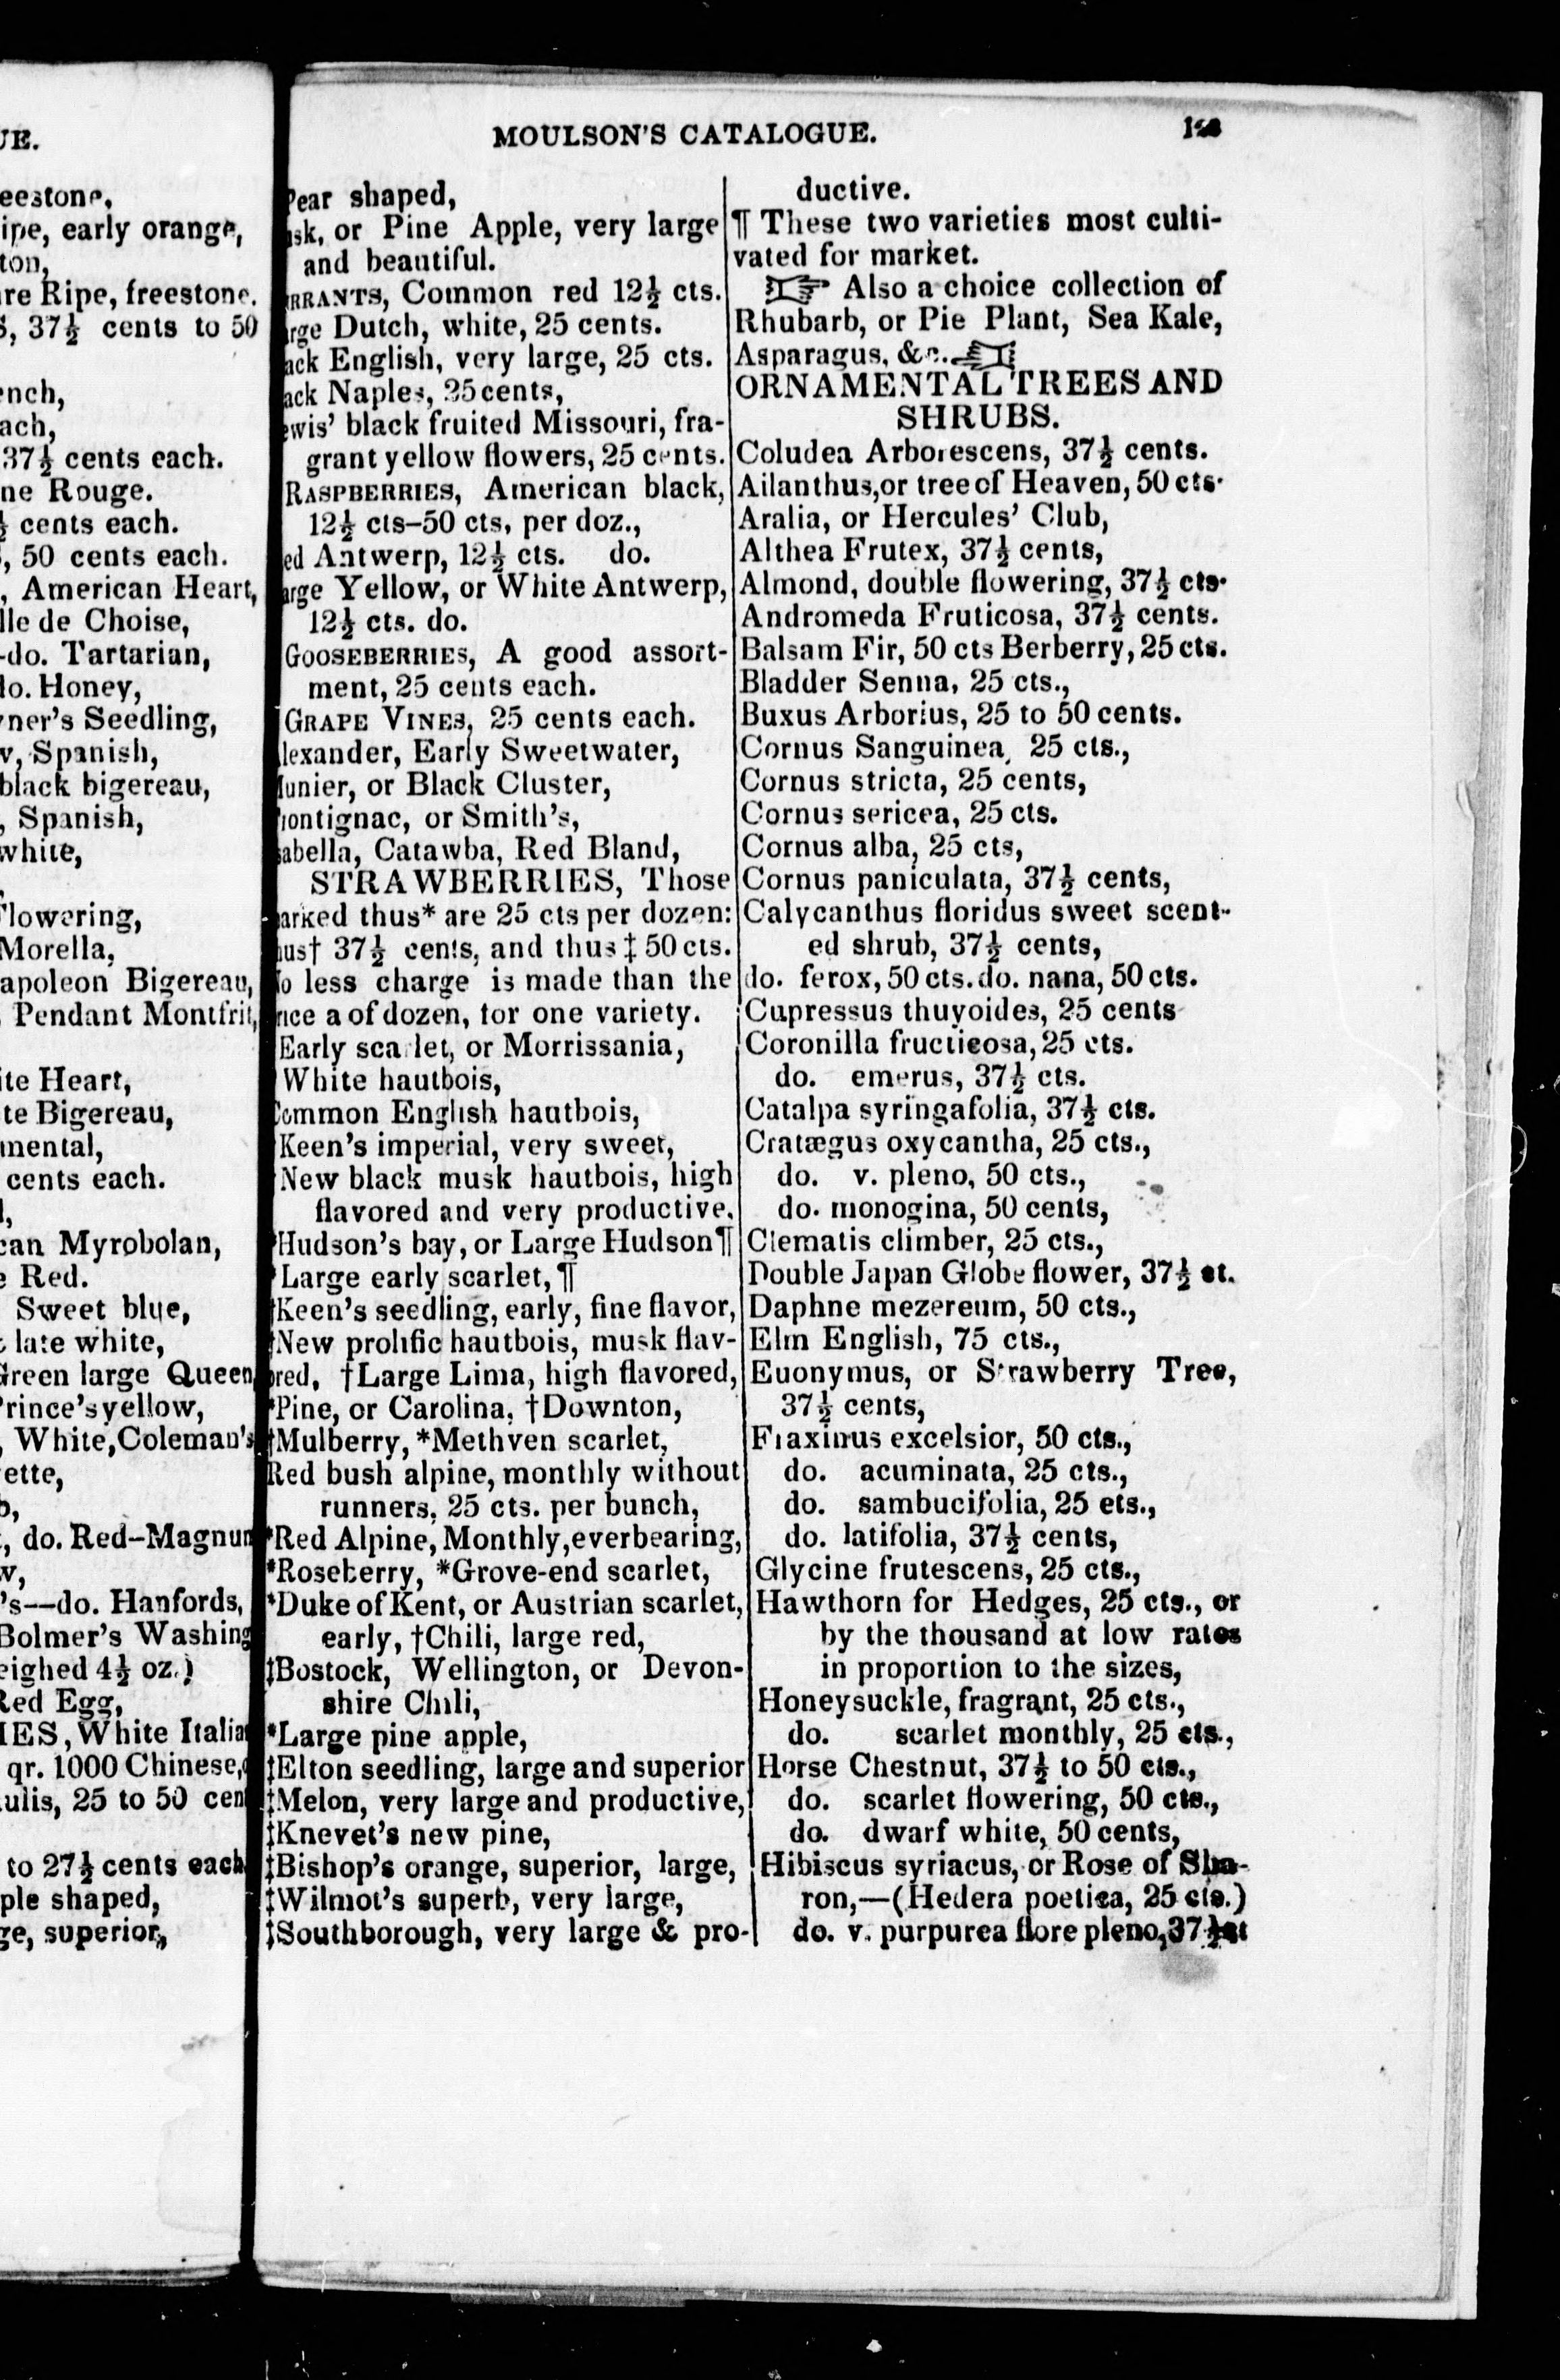 UE.
eestone,
ipe, early orange,
ton,
re Ripe, freestone.
S, 37½ cents to 50
ench,
ach,
37½ cents each.
ne Rouge.
½ cents each.
, 50 cents each.
, American Heart,
lle de Choise,
-do. Tartarian,
do. Honey,
ner's Seedling,
v, Spanish,
black bigereau,
, Spanish,
white,
Flowering,
Morella,
apoleon Bigereau,
Pendant Montfrit,
ite Heart,
te Bigereau,
mental,
cents each.
can Myrobolan,
e Red.
Sweet blue,
late white,
Green large Queen
Prince's yellow,
, White, Coleman's
ette,
, do. Red-Magnum
w,
's—do. Hanfords,
Bolmer's Washing
eighed 4½ oz.)
Red Egg,
IES, White Italia
qr. 1000 Chinese,
ulis, 25 to 50 cen
to 27½ cents each
ple shaped,
ge, superior,
MOULSON'S CATALOGUE.
Pear shaped,
sk, or Pine Apple, very large
and beautiful.
RRANTS, Common red 12½ cts.
rge Dutch, white, 25 cents.
ack English, very large, 25 cts.
ack Naples, 25 cents,
ewis' black fruited Missouri, fra-
grant yellow flowers, 25 cents.
RASPBERRIES, American black,
12½ cts-50 cts, per doz.,
ed Antwerp, 12½ cts. do.
arge Yellow, or White Antwerp,
12½ cts. do.
GOOSEBERRIES, A good assort-
ment, 25 cents each.
GRAPE VINES, 25 cents each.
lexander, Early Sweetwater,
Munier, or Black Cluster,
rontignac, or Smith's,
sabella, Catawba, Red Bland,
STRAWBERRIES, Those
marked thus* are 25 cts per dozen:
hus† 37½ cents, and thus ‡ 50 cts.
No less charge is made than the
rice a of dozen, for one variety.
Early scarlet, or Morrissania,
White hautbois,
Common English hautbois,
Keen's imperial, very sweet,
New black musk hautbois, high
flavored and very productive.
*Hudson's bay, or Large Hudson¶
*Large early scarlet, ¶
†Keen's seedling, early, fine flavor,
†New prolific hautbois, musk flav-
ored, †Large Lima, high flavored,
*Pine, or Carolina, †Downton,
†Mulberry, *Methven scarlet,
Red bush alpine, monthly without
runners, 25 cts. per bunch,
*Red Alpine, Monthly, everbearing,
*Roseberry, *Grove-end scarlet,
*Duke of Kent, or Austrian scarlet,
early, †Chili, large red,
‡Bostock, Wellington, or Devon-
shire Chili,
*Large pine apple,
‡Elton seedling, large and superior
‡Melon, very large and productive,
‡Knevet's new pine,
‡Bishop's orange, superior, large,
‡Wilmot's superb, very large,
‡Southborough, very large & pro-
ductive.
¶ These two varieties most culti-
vated for market.
☞ Also a choice collection of
Rhubarb, or Pie Plant, Sea Kale,
Asparagus, &c. ☜
ORNAMENTAL TREES AND
SHRUBS.
Coludea Arborescens, 37½ cents.
Ailanthus, or tree of Heaven, 50 cts.
Aralia, or Hercules' Club,
Althea Frutex, 37½ cents,
Almond, double flowering, 37½ cts.
Andromeda Fruticosa, 37½ cents.
Balsam Fir, 50 cts Berberry, 25 cts.
Bladder Senna, 25 cts.,
Buxus Arborius, 25 to 50 cents.
Cornus Sanguinea, 25 cts.,
Cornus stricta, 25 cents,
Cornus sericea, 25 cts.
Cornus alba, 25 cts,
Cornus paniculata, 37½ cents,
Calycanthus floridus sweet scent-
ed shrub, 37½ cents,
do. ferox, 50 cts. do. nana, 50 cts.
Cupressus thuyoides, 25 cents
Coronilla fructicosa, 25 cts.
do. emerus, 37½ cts.
Catalpa syringafolia, 37½ cts.
Cratægus oxycantha, 25 cts.,
do. v. pleno, 50 cts.,
do. monogina, 50 cents,
Clematis climber, 25 cts.,
Double Japan Globe flower, 37½ ct.
Daphne mezereum, 50 cts.,
Elm English, 75 cts.,
Euonymus, or Strawberry Tree,
37½ cents,
Fraxinus excelsior, 50 cts.,
do. acuminata, 25 cts.,
do. sambucifolia, 25 cts.,
do. latifolia, 37½ cents,
Glycine frutescens, 25 cts.,
Hawthorn for Hedges, 25 cts., or
by the thousand at low rates
in proportion to the sizes,
Honeysuckle, fragrant, 25 cts.,
do. scarlet monthly, 25 cts.,
Horse Chestnut, 37½ to 50 cts.,
do. scarlet flowering, 50 cts.,
do. dwarf white, 50 cents,
Hibiscus syriacus, or Rose of Sha-
ron,—(Hedera poetica, 25 cts.)
do. v. purpurea flore pleno, 37½ ct